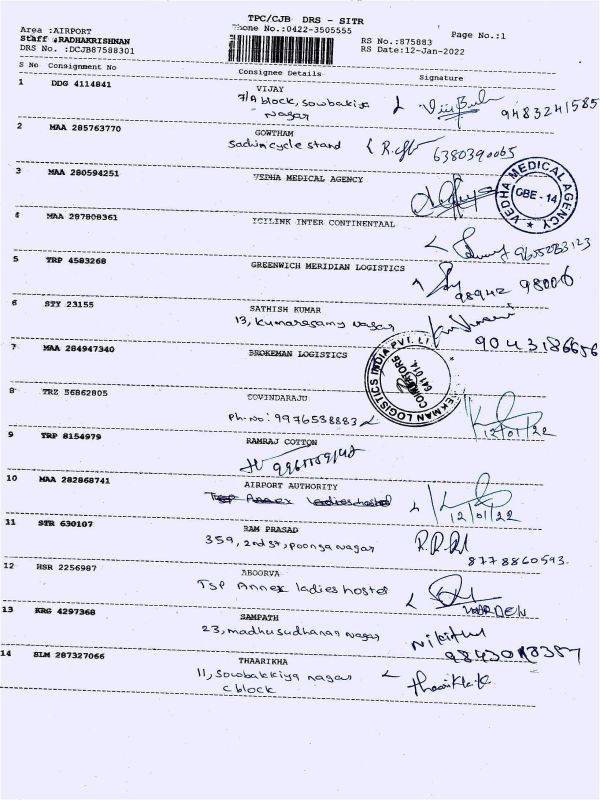 TPC/CJB DRS - SITR
Area :AIRPORT
Phone No.:0422-3505555
Page No.:1
Staff :RADHAKRISHNAN
RS No.:875883
DRS No. :DCJB87588301
RS Date:12-Jan-2022
S No Consignment No Consignee Details Signature
1 DDG 4114841 VIJAY
7/A block, Sowbakiya
Nagar
9483241585
2 MAA 285763770 GOWTHAM
Sadwin cycle stand
6380390065
3 MAA 280594251 VEDHA MEDICAL AGENCY
VEDHA MEDICAL AGENCY
CBE - 14
4 MAA 287808361 ICILINK INTER CONTINENTAAL
9655283123
5 TRP 4583268 GREENWICH MERIDIAN LOGISTICS
98942 98006
6 STY 23155 SATHISH KUMAR
13, Kumarasamy Nagar
9043186656
7 MAA 284947340 BROKEMAN LOGISTICS
EKMAN LOGISTICS INDIA PVT. LT
COIMBATORE
641 014.
8 TRZ 56862805 GOVINDARAJU
Ph.No: 9976538883
12/01/22
9 TRP 8154979 RAMRAJ COTTON
10 MAA 282868741 AIRPORT AUTHORITY
TSP Annex ladies hostel
12/01/22
11 STR 630107 RAM PRASAD
359, 2nd st, Poonga Nagar
8778860593.
12 HSR 2256987 ABOORVA
TSP Annex ladies hostel
WARDEN
13 KRG 4297368 SAMPATH
23, Madhusudhanan Nagar
14 SLM 287327066 THAARIKHA
11, Sowbakkiya nagar
C block